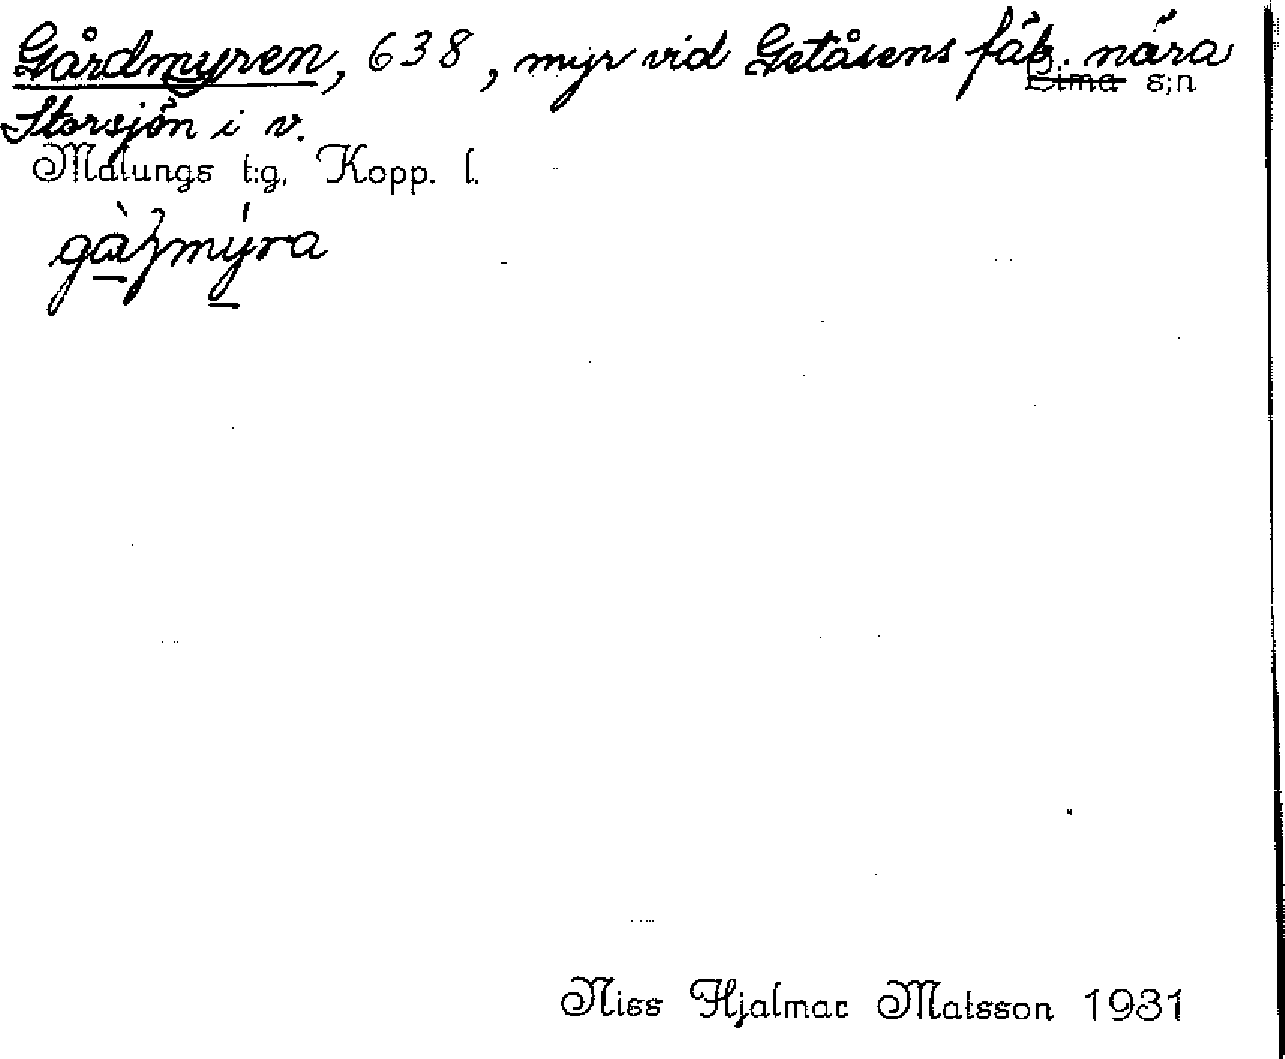 Gårdmyren, 638, myr vid Getåsens fäb. nära
Lima s;n
Storsjön i v.
Malungs t:g, Kopp. l.
Niss Hjalmar Matsson 1931